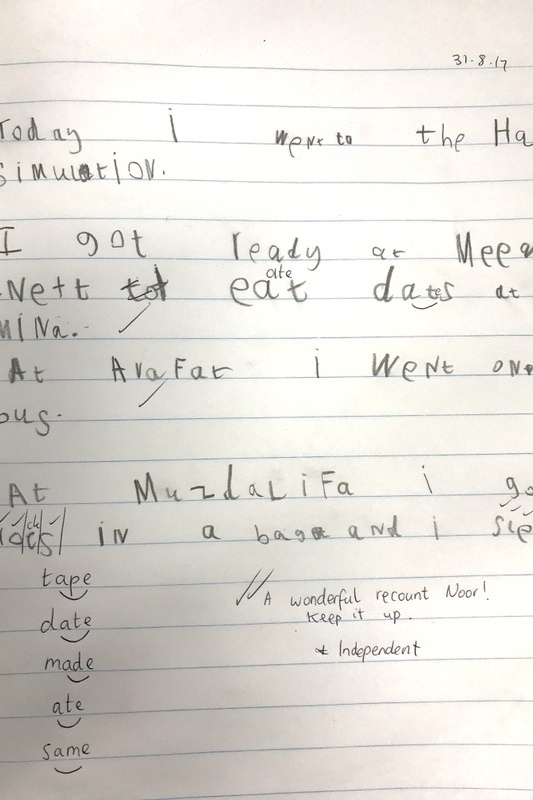 31.8.17
Today i went to the Ha
simulation.
I got ready at Mee
ate
Nett eat dates at
MiNa.
At AraFat i WeNt one
bus.
At MuzdaLiFa i go
ck
in a bag and i sle
tape
// A wonderful recount Noor!
date
Keep it up.
made
* Independent
ate
same